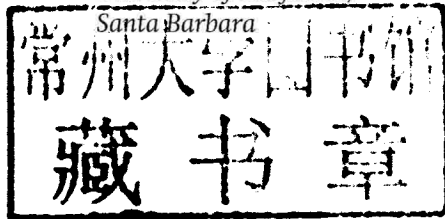 Santa Barbara
常州大学图书馆
藏书章